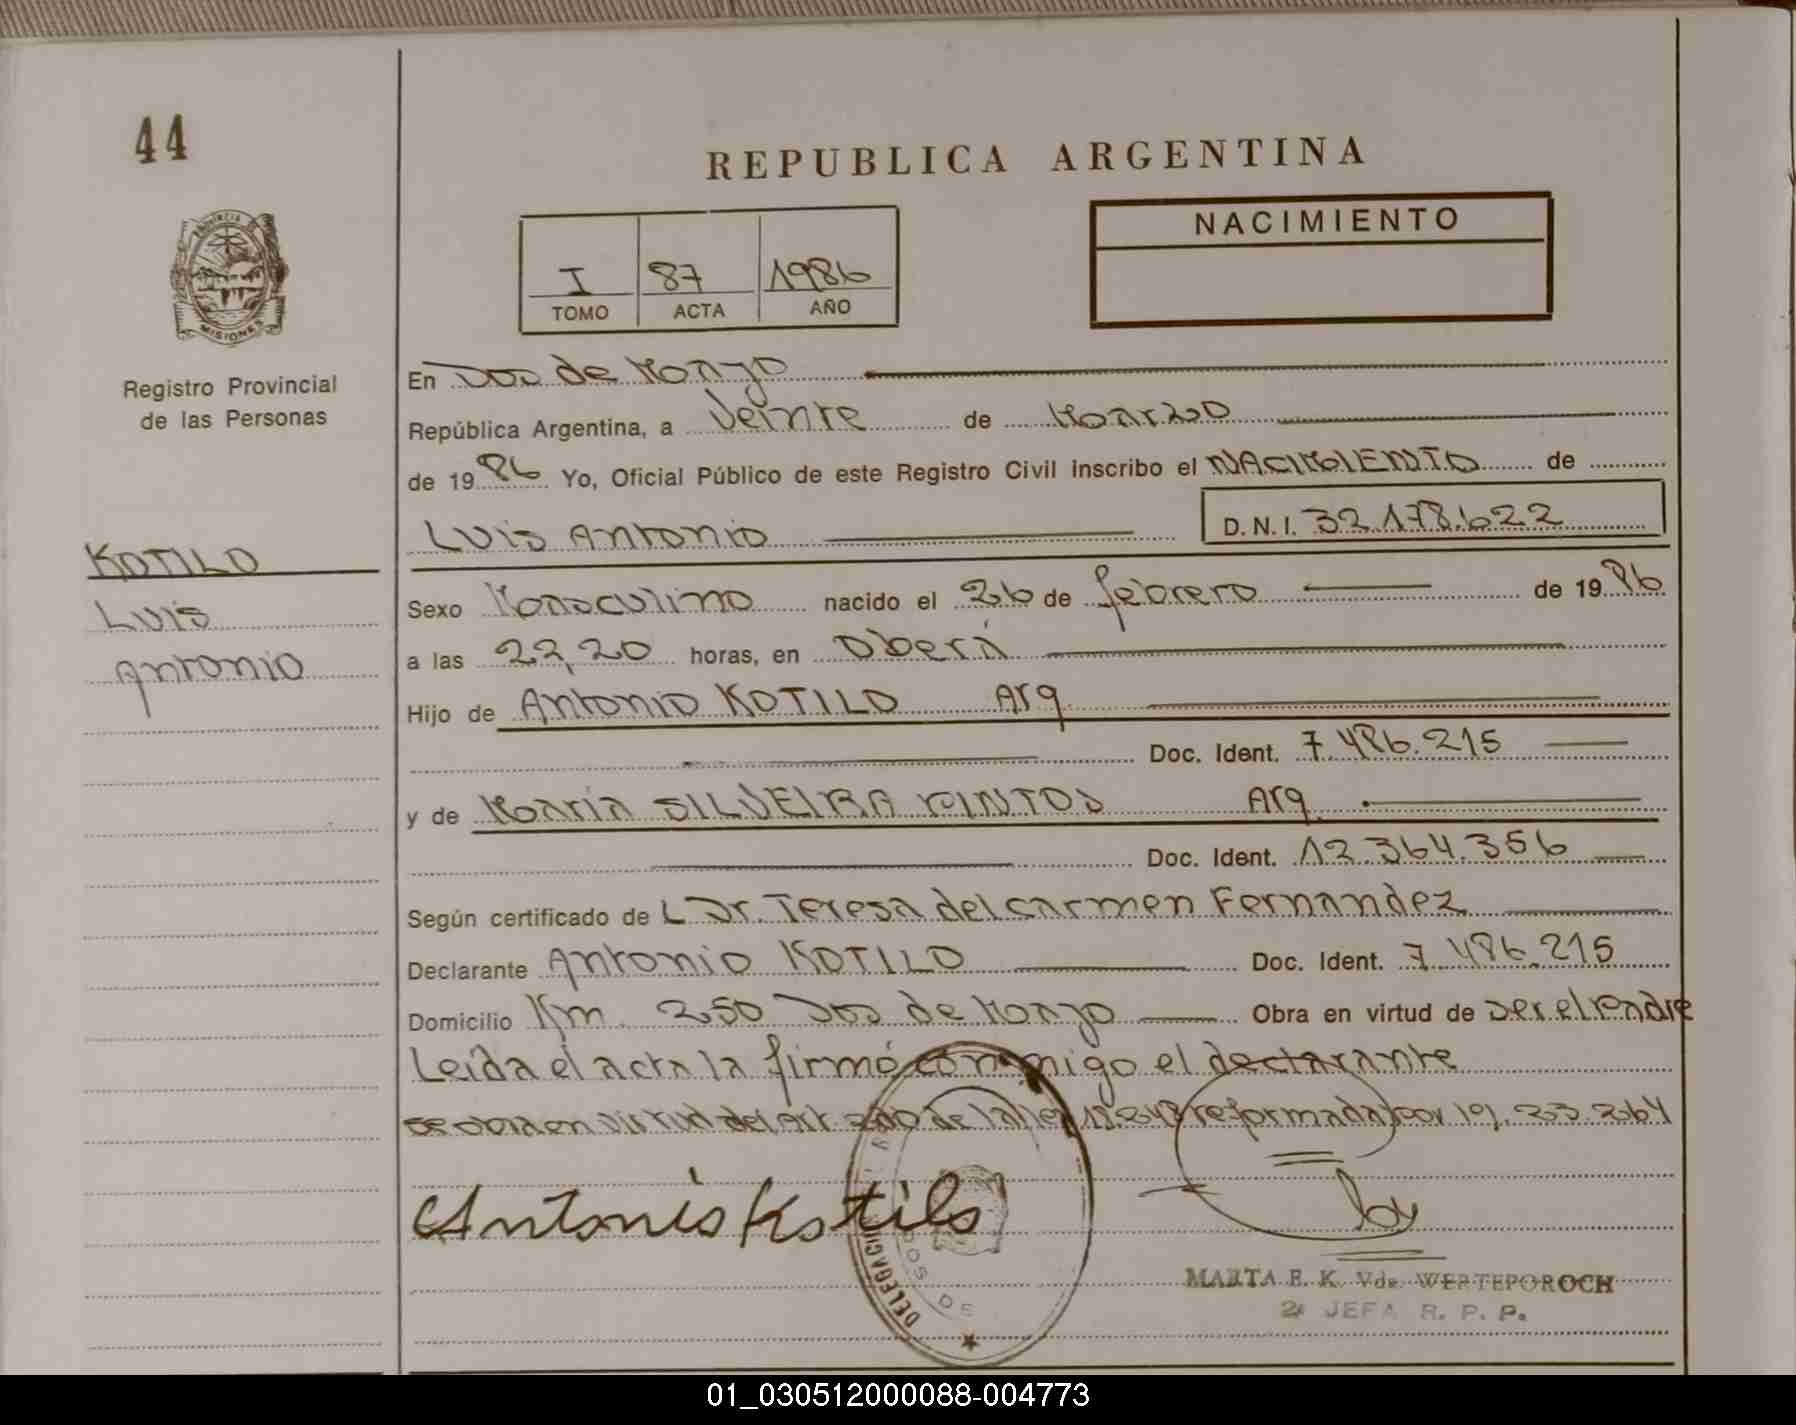 44
REPUBLICA ARGENTINA
PROVINCIA DE
MISIONES
NACIMIENTO
I 87 1986
TOMO ACTA AÑO
Registro Provincial
de las Personas
En Dos de Mayo
República Argentina, a Veinte de Marzo
de 1986 Yo, Oficial Público de este Registro Civil inscribo el NACIMIENTO de
Luis Antonio D. N. I. 32.178.622
KOTILO
Luis
Antonio
Sexo Masculino nacido el 26 de febrero de 1986
a las 22,20 horas, en Oberá
Hijo de Antonio KOTILO Arg
Doc. Ident. 7.486.215
y de María SILVEIRA PINTOS Arg.
Doc. Ident. 12.364.356
Según certificado de L Dr. Teresa del Carmen Fernandez
Declarante Antonio KOTILO Doc. Ident. 7.486.215
Domicilio Km. 250 Dos de Mayo Obra en virtud de ser el Padre
Leída el acta la firmó conmigo el declarante
se obra en virtud del art. de la ley 18.248 reformada por ley. 23.264
Antonio Kotilo
DELEGACION
DOS DE
MARTA E. K. Vda. WERTEPOROCH
JEFA R. P. P.
01_030512000088-004773